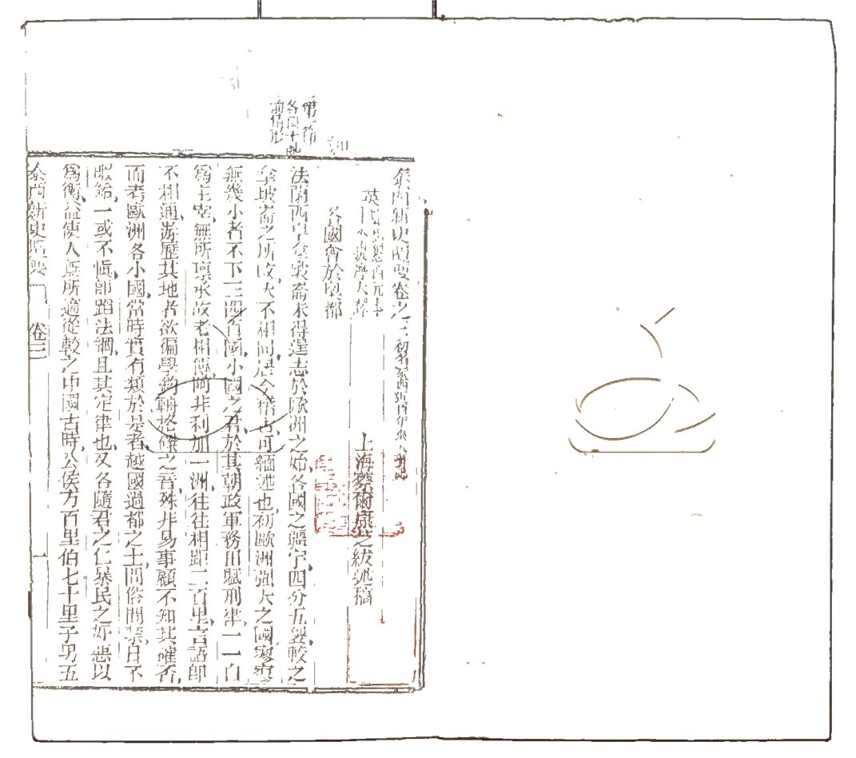 泰西新史攬要卷之三
上海蔡爾康芝紱述稿
各國會於奧都
第一節
各國十
前情形
法蘭西皇拿破崙未得逞志於歐洲之始各國之疆宇四分五裂較之
拿破崙之所改大不相同居今稽古可緬述也初歐洲強大之國寥寥
無幾小者不下三四百國小國之君於其朝政軍務田賦刑律一一自
爲主宰無所稟承故老相傳阿非利加一洲往往相距二百里言語卽
不相通游歷其地者欲徧學鉤輈格磔之音殊非易事顧不知其確否
而考歐洲各小國當時實有類於是者越國過都之士問俗問禁日不
暇給一或不愼卽蹈法網且其定律也又各隨君之仁暴民之好惡以
爲衡益使人無所適從較之中國古時公侯方百里伯七十里子男五
泰西新史攬要
卷三
一